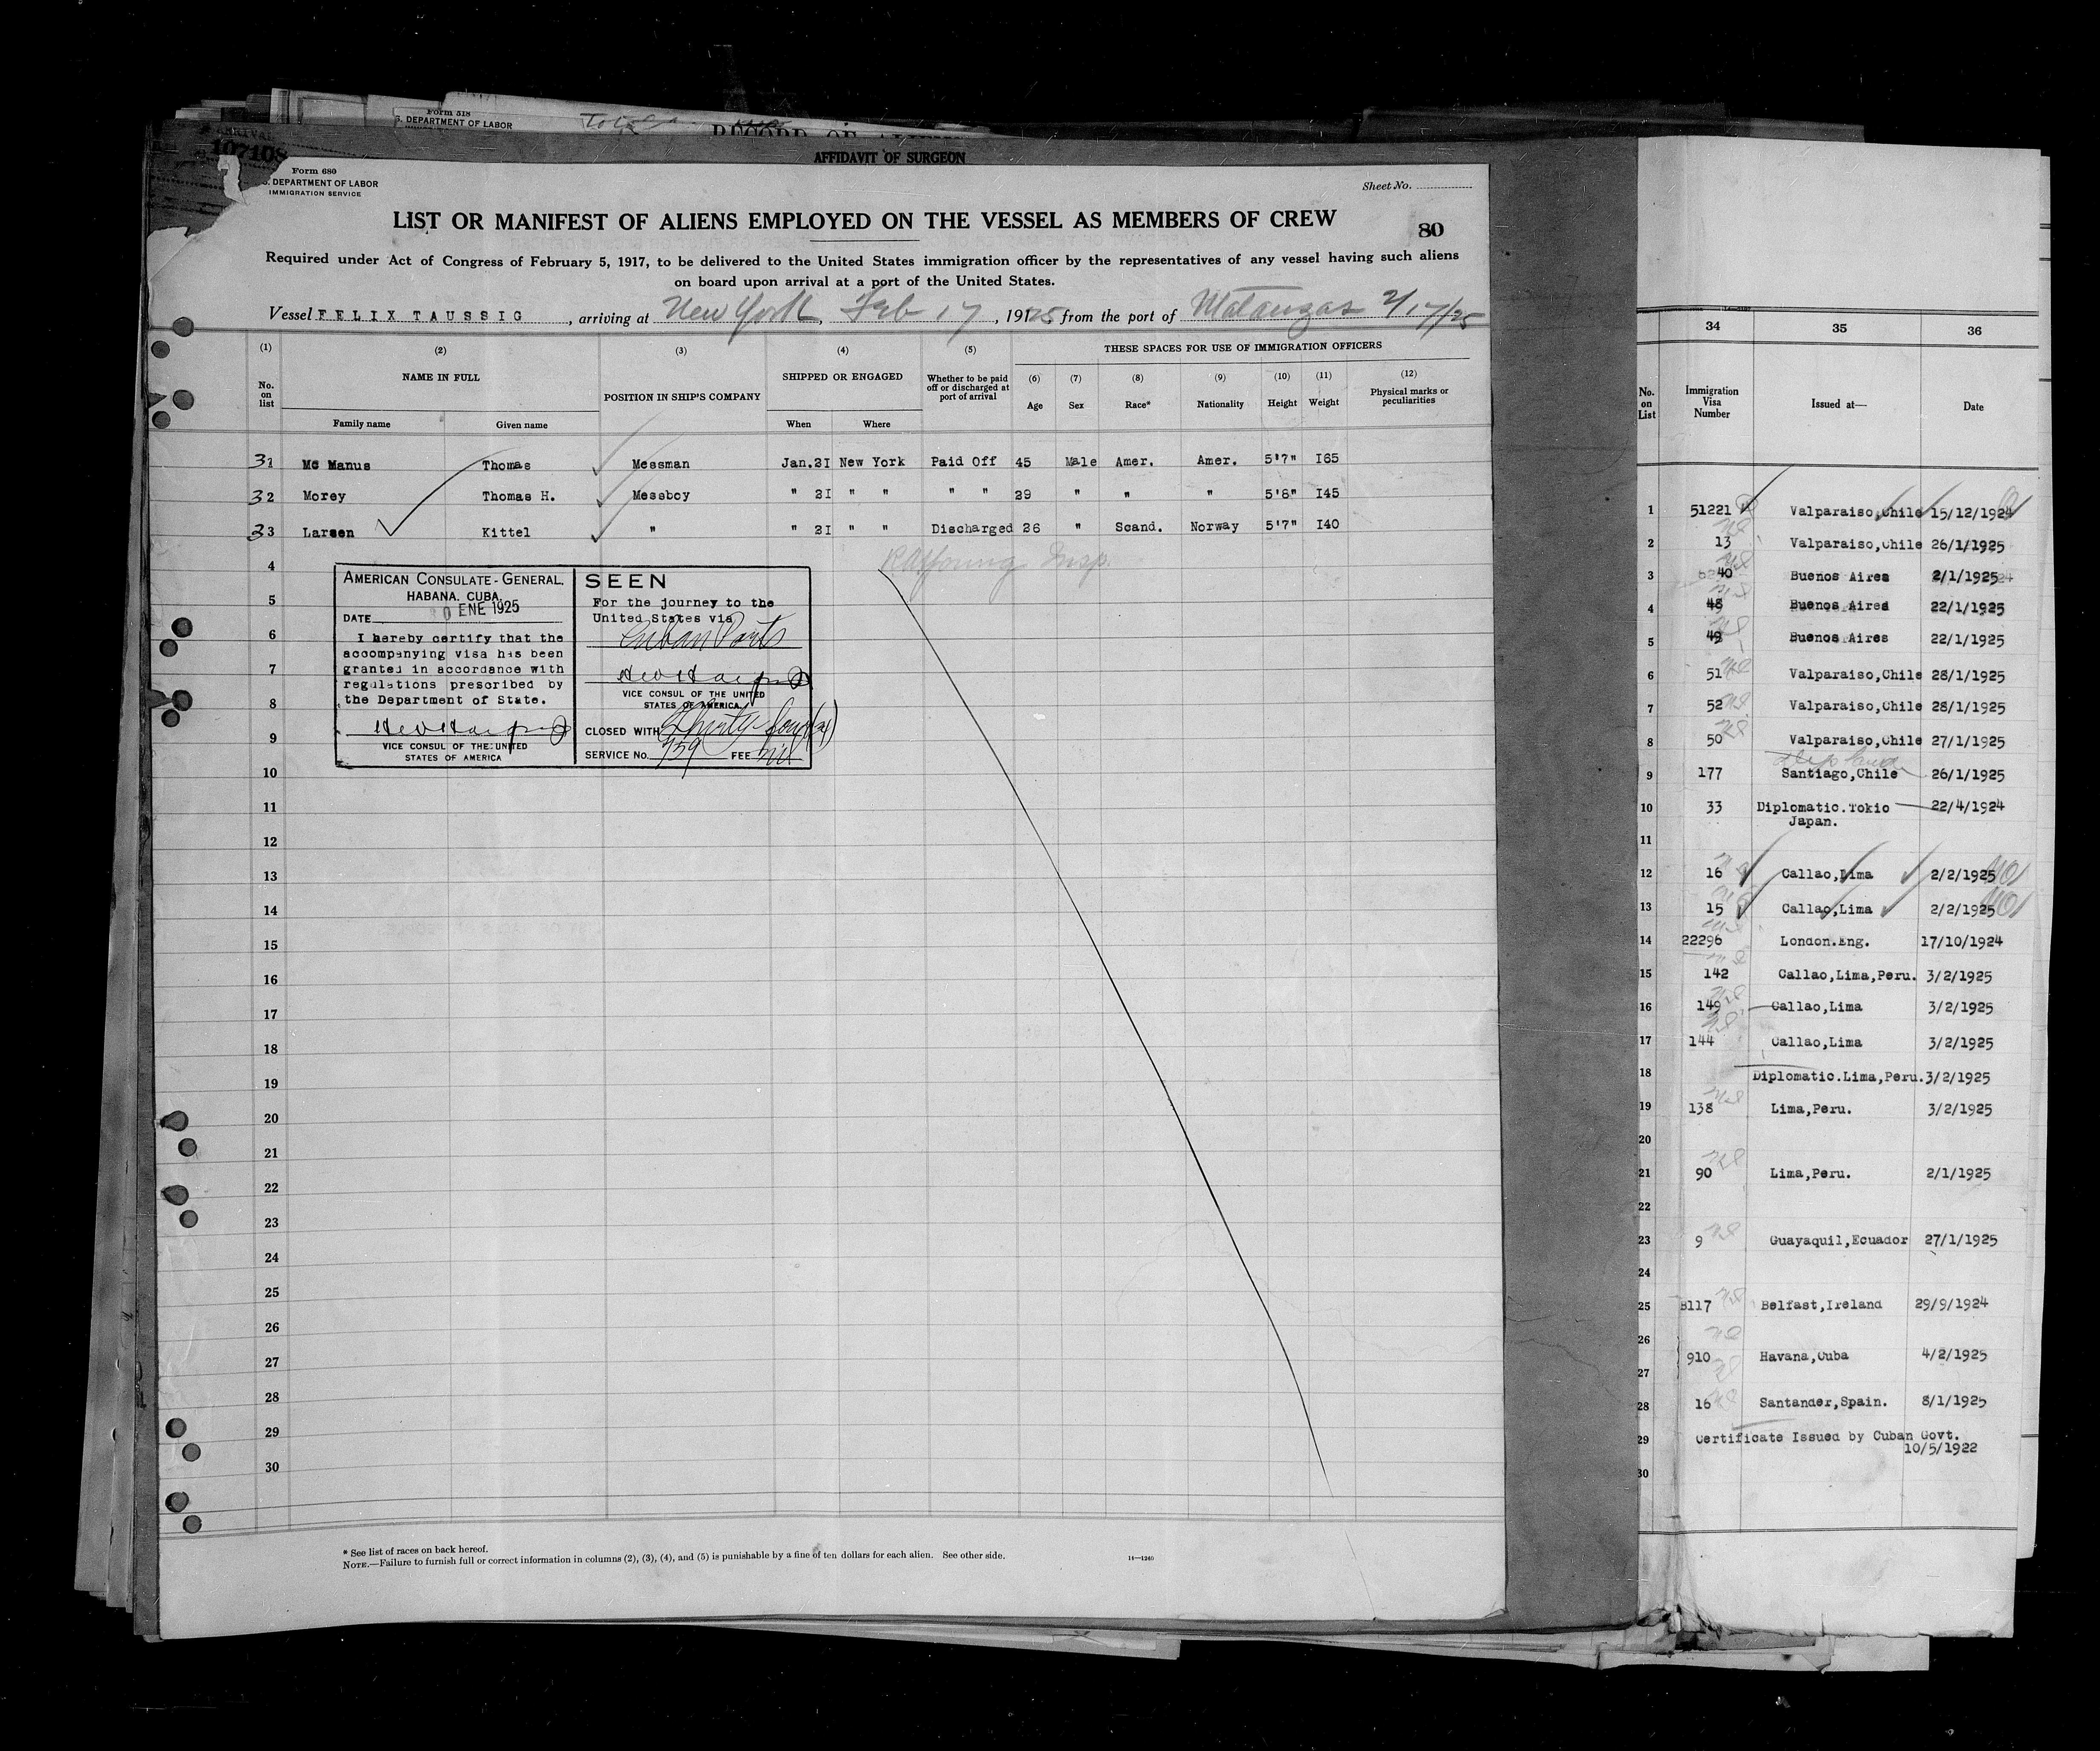 Form 518
S. DEPARTMENT OF LABOR
107108
AFFIDAVIT OF SURGEON
Form 680
S. DEPARTMENT OF LABOR
IMMIGRATION SERVICE
Sheet No.
LIST OR MANIFEST OF ALIENS EMPLOYED ON THE VESSEL AS MEMBERS OF CREW
80
Required under Act of Congress of February 5, 1917, to be delivered to the United States immigration officer by the representatives of any vessel having such aliens
on board upon arrival at a port of the United States.
Vessel FELIX TAUSSIG, arriving at New York, Feb 17, 1925 from the port of Matanzas 2/17/25
(1) (2) (3) (4) (5) THESE SPACES FOR USE OF IMMIGRATION OFFICERS
No. on list NAME IN FULL POSITION IN SHIP'S COMPANY SHIPPED OR ENGAGED Whether to be paid off or discharged at port of arrival (6) Age (7) Sex (8) Race* (9) Nationality (10) Height (11) Weight (12) Physical marks or peculiarities
Family name Given name When Where
31 Mc Manus Thomas Messman Jan.21 New York Paid Off 45 Male Amer. Amer. 5'7" 165
32 Morey Thomas H. Messboy " 21 " " " " 29 " " " 5'8" 145
33 Larsen Kittel " " 21 " " Discharged 26 " Scand. Norway 5'7" 140
4
5
6
7
8
9
10
11
12
13
14
15
16
17
18
19
20
21
22
23
24
25
26
27
28
29
30
AMERICAN CONSULATE-GENERAL,
HABANA, CUBA.
DATE 0 ENE 1925
I hereby certify that the
accompanying visa has been
granted in accordance with
regulations prescribed by
the Department of State.
VICE CONSUL OF THE UNITED
STATES OF AMERICA
SEEN
For the journey to the
United States via
Cuban Ports
VICE CONSUL OF THE UNITED
STATES OF AMERICA.
CLOSED WITH Thirty four (34)
SERVICE No. 739 FEE nil
* See list of races on back hereof.
NOTE.—Failure to furnish full or correct information in columns (2), (3), (4), and (5) is punishable by a fine of ten dollars for each alien. See other side.
14—1240
34 35 36
No. on List Immigration Visa Number Issued at— Date
1 51221 Valparaiso,Chile 15/12/1924
2 13 Valparaiso,Chile 26/1/1925
3 40 Buenos Aires 2/1/1925
4 48 Buenos Aires 22/1/1925
5 49 Buenos Aires 22/1/1925
6 51 Valparaiso,Chile 28/1/1925
7 52 Valparaiso,Chile 28/1/1925
8 50 Valparaiso,Chile 27/1/1925
9 177 Santiago,Chile 26/1/1925
10 33 Diplomatic.Tokio 22/4/1924
Japan.
11
12 16 Callao,Lima 2/2/1925
13 15 Callao,Lima 2/2/1925
14 22296 London.Eng. 17/10/1924
15 142 Callao,Lima,Peru. 3/2/1925
16 149 Callao,Lima 3/2/1925
17 144 Callao,Lima 3/2/1925
18 Diplomatic.Lima,Peru. 3/2/1925
19 138 Lima,Peru. 3/2/1925
20
21 90 Lima,Peru. 2/1/1925
22
23 9 Guayaquil,Ecuador 27/1/1925
24
25 B117 Belfast,Ireland 29/9/1924
26
910 Havana,Cuba 4/2/1925
27
28 16 Santander,Spain. 8/1/1925
29 Certificate Issued by Cuban Govt.
10/5/1922
30